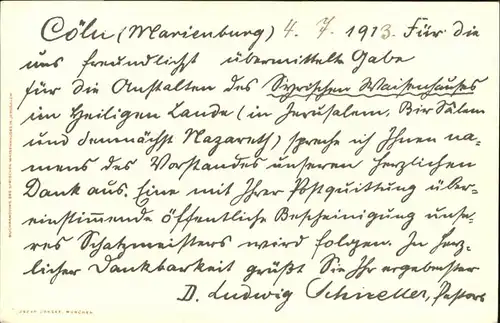 Cöln (Marienburg) 4. 7. 1913. Für die
uns freundlichst übermittelte Gabe
für die Anstalten des Syrischen Waisenhauses
im Heiligen Lande (in Jerusalem, Bir Salem
und demnächst Nazareth) spreche ich Ihnen na-
mens des Vorstandes unseren herzlichen
Dank aus. Eine mit Ihrer Postquittung über-
einstimmende öffentliche Bescheinigung unse-
res Schatzmeisters wird folgen. In herz-
licher Dankbarkeit grüßt Sie Ihr ergebenster
D. Ludwig Schneller, Pastor